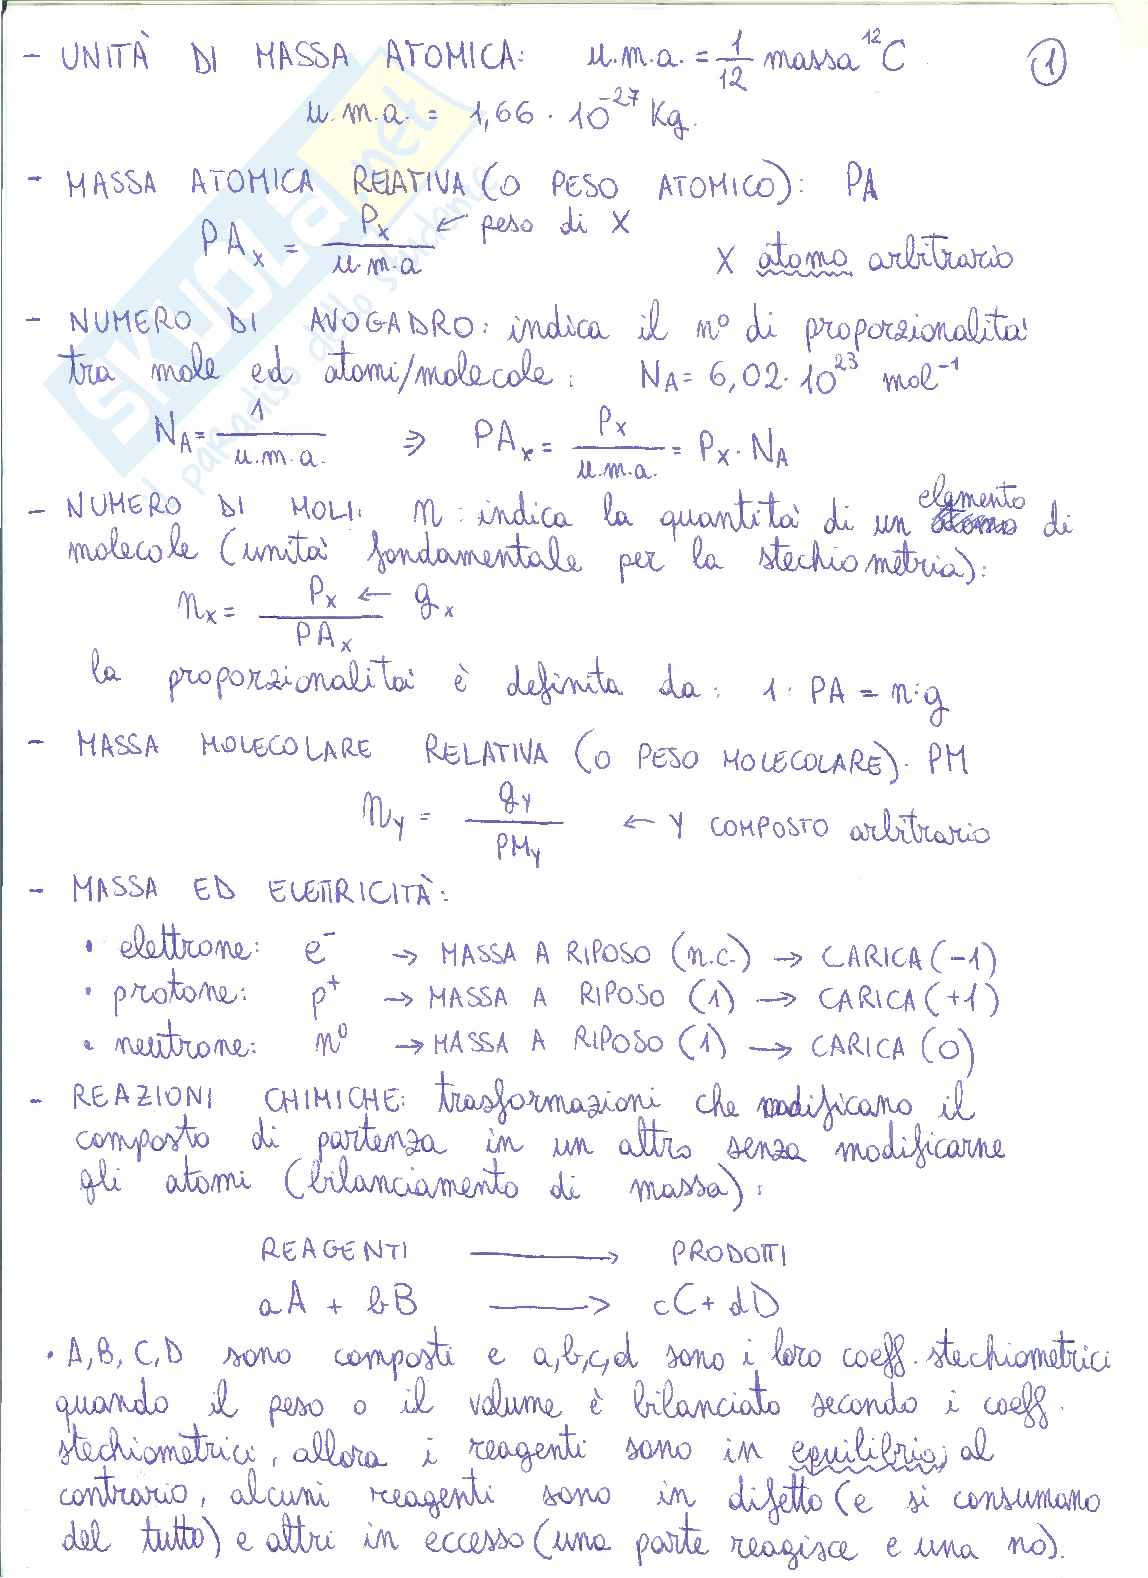 - UNITÀ DI MASSA ATOMICA: u.m.a. = 1/12 massa ¹²C ①
u.m.a. = 1,66 · 10⁻²⁷ Kg.
- MASSA ATOMICA RELATIVA (O PESO ATOMICO): PA
PAₓ = Pₓ/u.m.a ← peso di X
X atomo arbitrario
- NUMERO DI AVOGADRO: indica il n° di proporzionalità
tra mole ed atomi/molecole: N_A = 6,02 · 10²³ mol⁻¹
N_A = 1/u.m.a. ⇒ PAₓ = Pₓ/u.m.a. = Pₓ · N_A
- NUMERO DI MOLI: n: indica la quantità di un elemento di
molecole (unità fondamentale per la stechiometria):
nₓ = Pₓ/PAₓ ← gₓ
la proporzionalità è definita da: 1 : PA = n : g
- MASSA MOLECOLARE RELATIVA (O PESO MOLECOLARE). PM
n_Y = g_Y/PM_Y ← Y COMPOSTO arbitrario
- MASSA ED ELETTRICITÀ:
• elettrone: e⁻ → MASSA A RIPOSO (n.c.) → CARICA (-1)
• protone: p⁺ → MASSA A RIPOSO (1) → CARICA (+1)
• neutrone: n⁰ → MASSA A RIPOSO (1) → CARICA (0)
- REAZIONI CHIMICHE: trasformazioni che modificano il
composto di partenza in un altro senza modificarne
gli atomi (bilanciamento di massa):
REAGENTI → PRODOTTI
aA + bB → cC + dD
• A, B, C, D sono composti e a, b, c, d sono i loro coeff. stechiometrici
quando il peso o il volume è bilanciato secondo i coeff.
stechiometrici, allora i reagenti sono in equilibrio, al
contrario, alcuni reagenti sono in difetto (e si consumano
del tutto) e altri in eccesso (una parte reagisce e una no).
SKUOLA.net
il paradiso dello studente